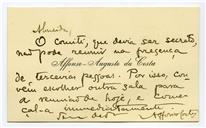 Almeida,
O comité, que devia ser secreto,
não pode reunir na presença
Affonso-Augusto da Costa
de terceira pessoa. Por isso, con-
vém escolher outra sala para
a reunião de hoje, e
immediatamente.
Affonso Costa